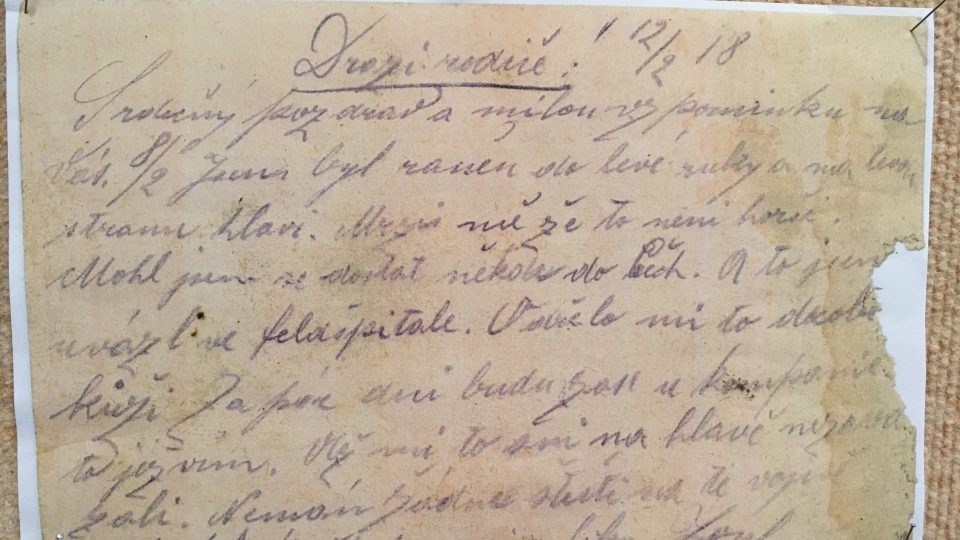 Drazi rodiče! 12/2 18
Srdečný pozdrav a milou vzpominku na
Vás. 8/2 Jsem byl raněn do levé ruky a na levou
stranu hlavi. Mrzi mě že to neni horši.
Mohl jsem se dostat někde do Čech. A to jsem
uvázl ve feldšpitale. Udělo mi to
kůži Za pár dni budu zase u kompanie.
to již vim. Než mi to ani na hlavě
Nemám žádne stěsti na té vojně